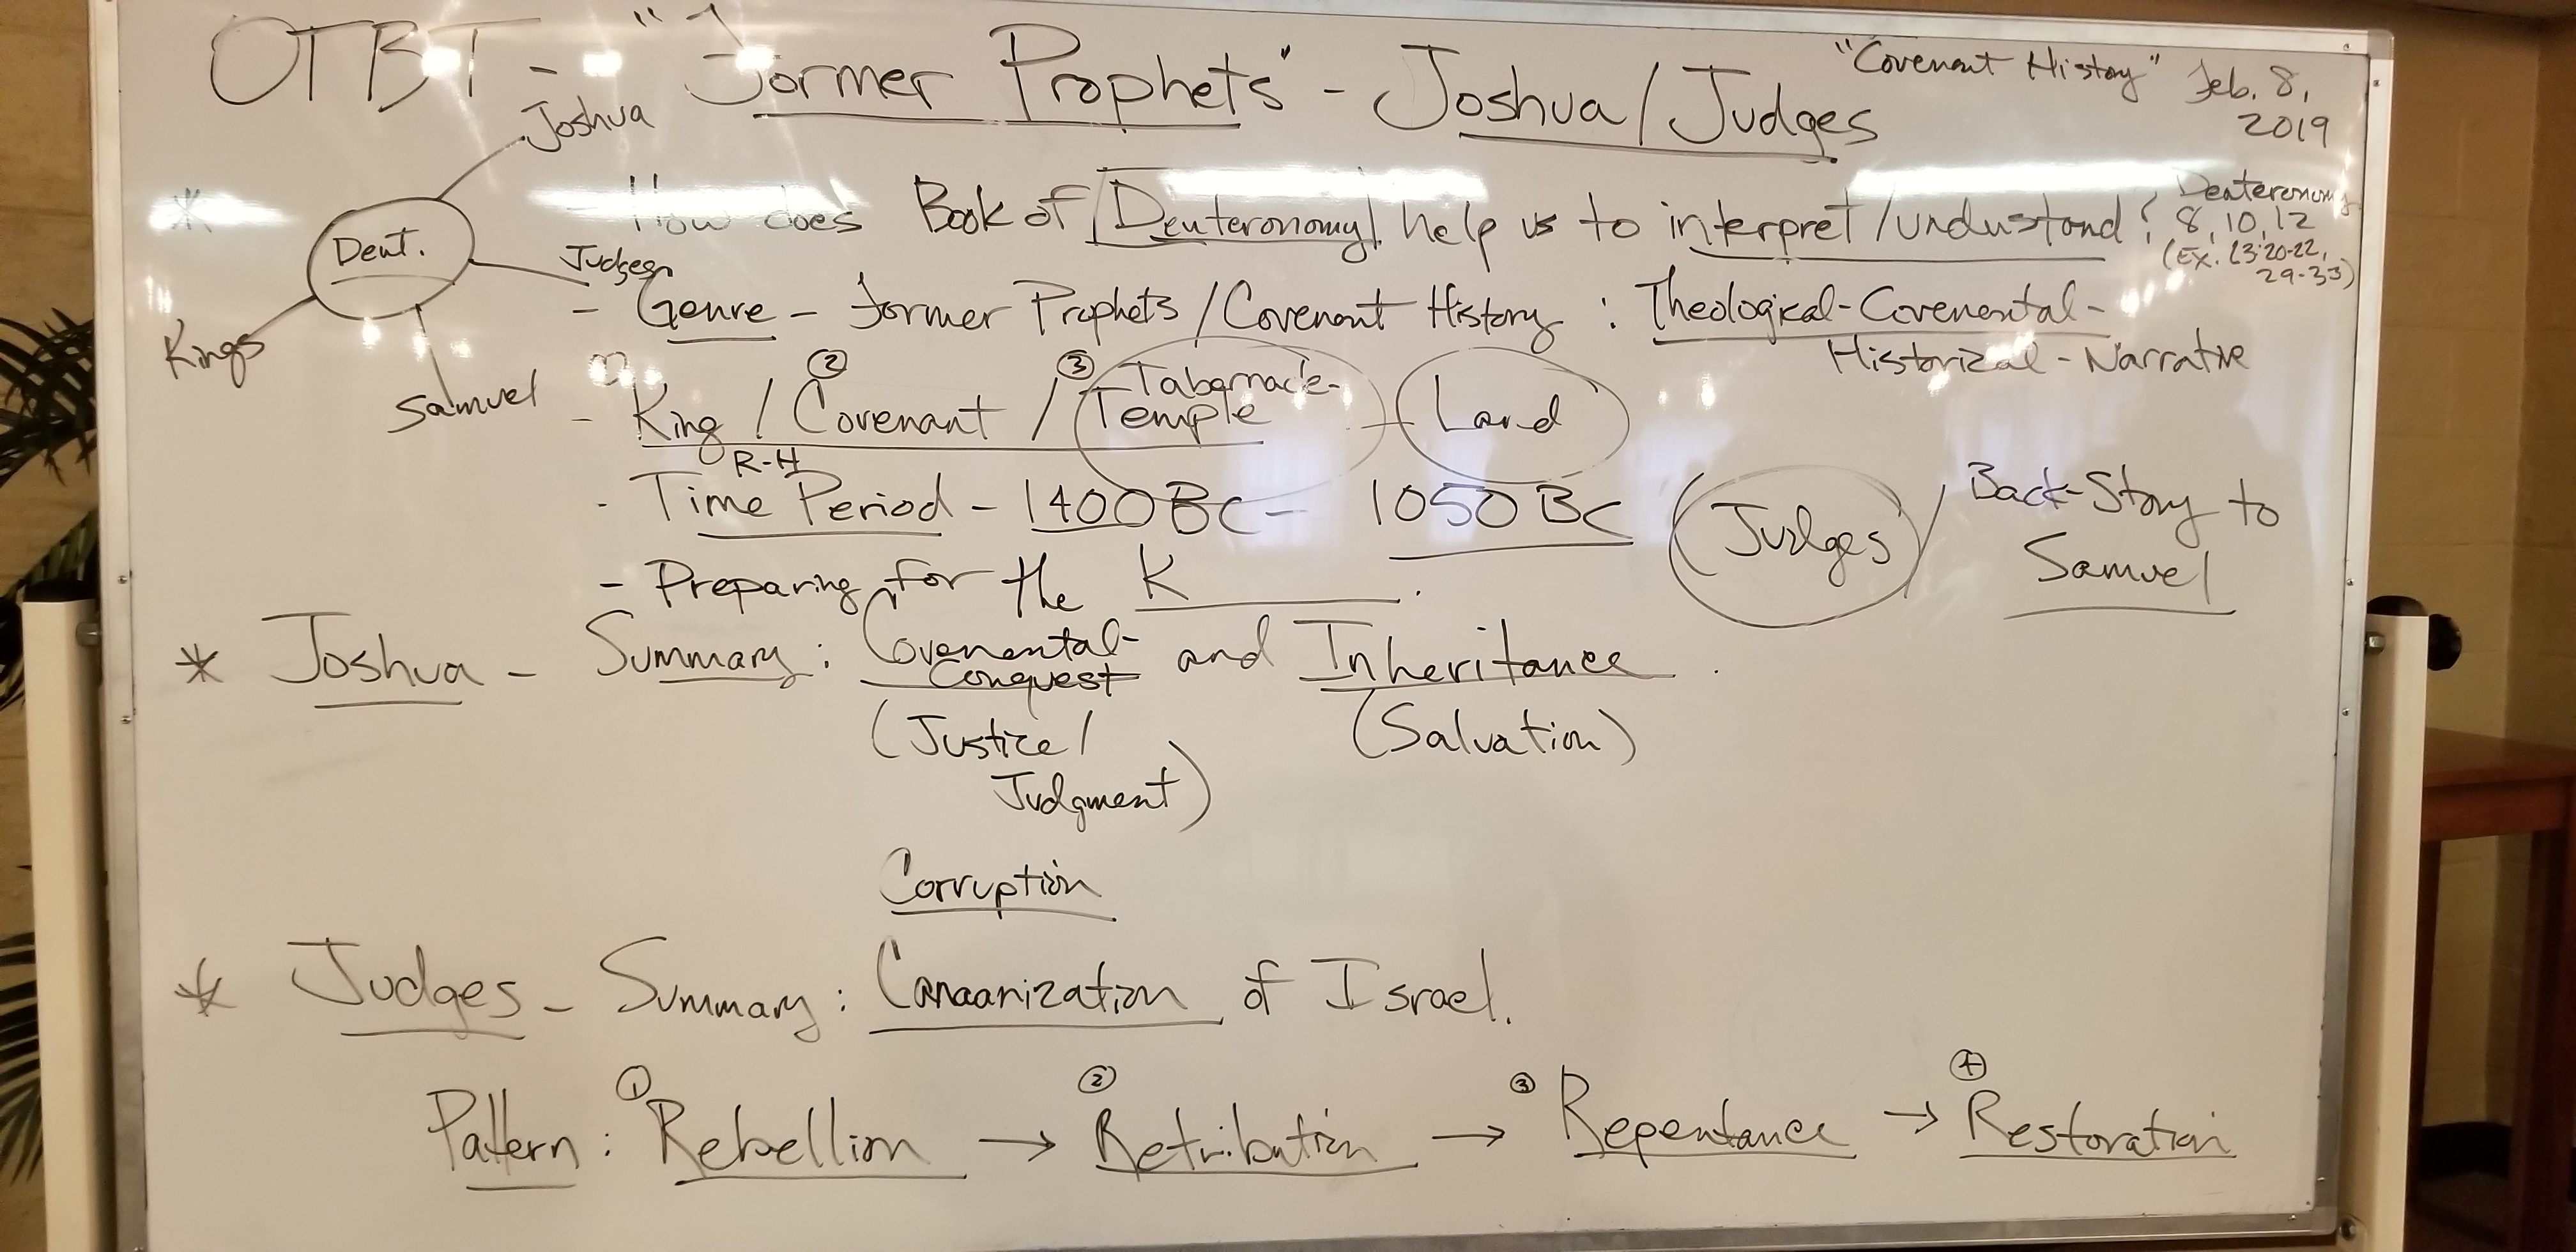 OTBT - "Former Prophets" - Joshua/Judges
"Covenant History" Feb. 8,
2019
Joshua
Deut.
Judges
Kings
Samuel
* - How does Book of Deuteronomy help us to interpret/understand?
Deuteronomy
8, 10, 12
(Ex. 23:20-22,
29-33)
- Genre - Former Prophets/Covenant History : Theological-Covenental-
Historical-Narrative
① ② ③
- King / Covenant / Tabernacle-
Temple + Land
R-H
- Time Period - 1400 BC - 1050 BC (Judges / Back-Story to
Samuel
- Preparing for the K______.
* Joshua - Summary: Covenental-
Conquest and Inheritance.
(Justice/
Judgment)
(Salvation)
Corruption
* Judges - Summary: Canaanization of Israel.
Pattern: ① Rebellion → ② Retribution → ③ Repentance → ④ Restoration